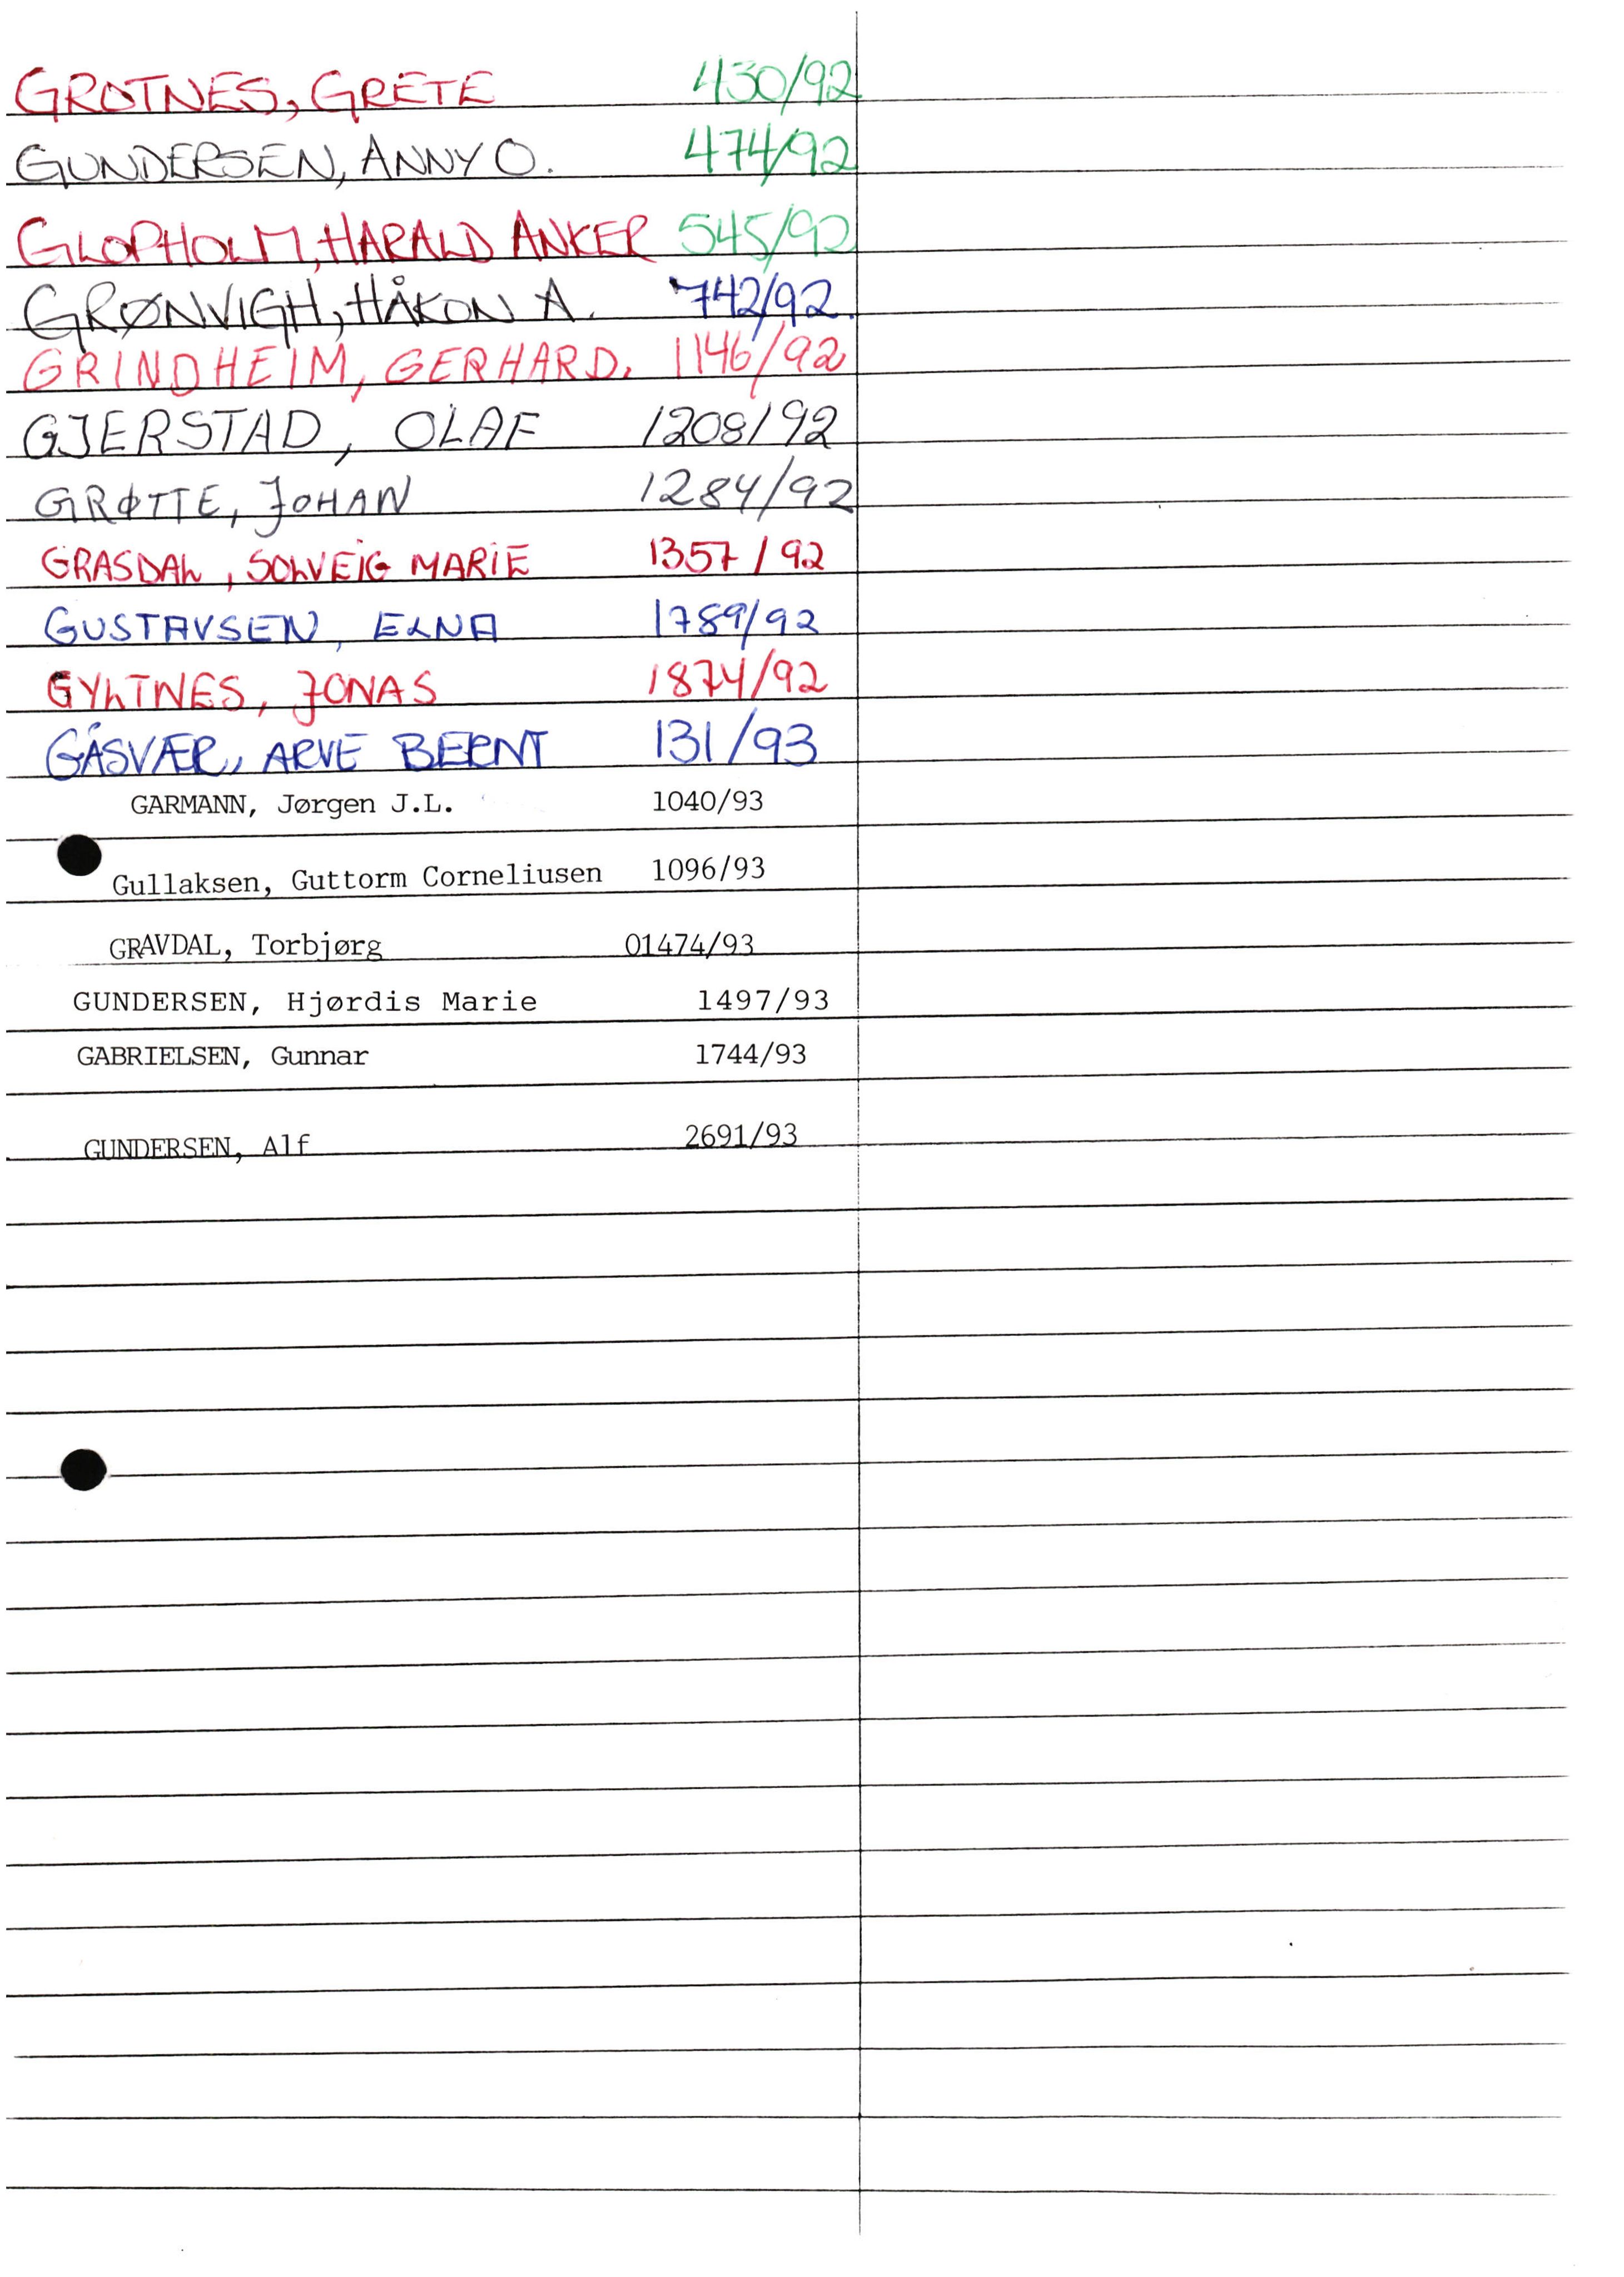 GROTNES, GRETE 430/92
GUNDERSEN, ANNY O. 474/92
GLOPHOLM, HARALD ANKER 545/92
GRØNVIGH, HÅKON A. 742/92.
GRINDHEIM, GERHARD. 1146/92
GJERSTAD, OLAF 1208/92
GRØTTE, JOHAN 1284/92
GRASDAL, SOLVEIG MARIE 1357/92
GUSTAVSEN, ELNA 1789/92
GYLTNES, JONAS 1874/92
GÅSVÆR, ARVE BERNT 131/93
GARMANN, Jørgen J.L. 1040/93
Gullaksen, Guttorm Corneliusen 1096/93
GRAVDAL, Torbjørg 01474/93
GUNDERSEN, Hjørdis Marie 1497/93
GABRIELSEN, Gunnar 1744/93
GUNDERSEN, Alf 2691/93